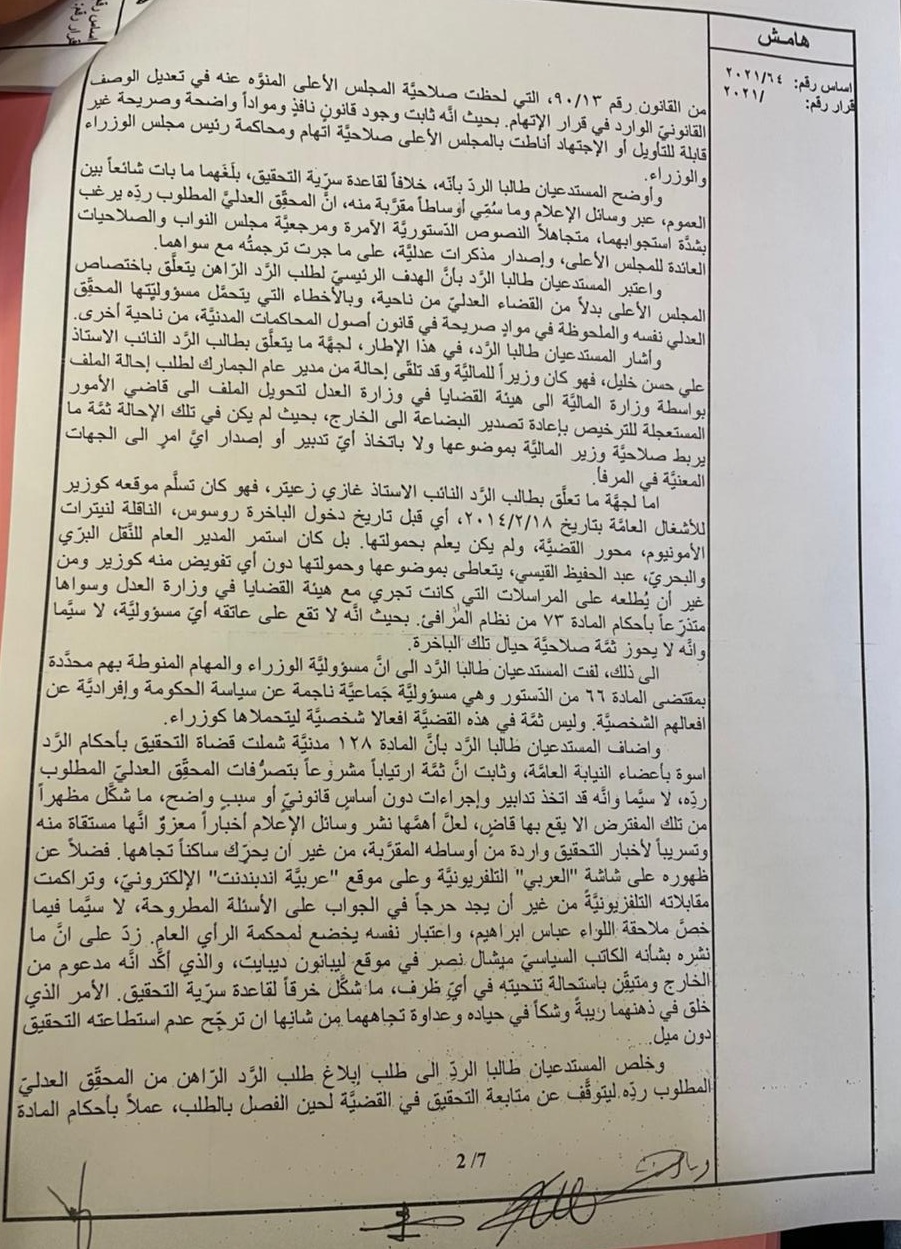 هامش
اساس رقم: ٢٠٢١/٦٤
قرار رقم: /٢٠٢١
من القانون رقم ٩٠/١٣، التي لحظت صلاحيَّة المجلس الأعلى المنوَّه عنه في تعديل الوصف
القانونيّ الوارد في قرار الإتهام. بحيث انَّه ثابت وجود قانونٍ نافذٍ ومواداً واضحة وصريحة غير
قابلة للتأويل أو الإجتهاد أناطت بالمجلس الأعلى صلاحيَّة اتهام ومحاكمة رئيس مجلس الوزراء
والوزراء.
وأوضح المستدعيان طالبا الردّ بأنَّه، خلافاً لقاعدة سرّية التحقيق، بلَغَهما ما بات شائعاً بين
العموم، عبر وسائل الإعلام وما سُمّي أوساطاً مقرَّبة منه، انَّ المحقِّق العدليَّ المطلوب ردّه يرغب
بشدَّة استجوابهما، متجاهلاً النصوص الدّستوريَّة الآمرة ومرجعيَّة مجلس النواب والصلاحيات
العائدة للمجلس الأعلى، وإصدار مذكرات عدليَّة، على ما جرت ترجمتُه مع سواهما.
واعتبر المستدعيان طالبا الرَّد بأنَّ الهدف الرئيسيّ لطلب الرَّد الرَّاهن يتعلَّق باختصاص
المجلس الأعلى بدلاً من القضاء العدليّ من ناحية، وبالأخطاء التي يتحمَّل مسؤوليَّتها المحقِّق
العدلي نفسه والملحوظة في موادٍ صريحة في قانون أصول المحاكمات المدنيَّة، من ناحية أخرى.
وأشار المستدعيان طالبا الرَّد، في هذا الإطار، لجهَّة ما يتعلَّق بطالب الرَّد النائب الاستاذ
علي حسن خليل، فهو كان وزيراً للماليَّة وقد تلقَّى إحالة من مدير عام الجمارك لطلب إحالة الملف
بواسطة وزارة الماليَّة الى هيئة القضايا في وزارة العدل لتحويل الملف الى قاضي الأمور
المستعجلة للترخيص بإعادة تصدير البضاعة الى الخارج، بحيث لم يكن في تلك الإحالة ثمَّة ما
يربط صلاحيَّة وزير الماليَّة بموضوعها ولا باتخاذ أيّ تدبير أو إصدار ايَّ امرٍ الى الجهات
المعنيَّة في المرفأ.
اما لجهَّة ما تعلَّق بطالب الرَّد النائب الاستاذ غازي زعيتر، فهو كان تسلَّم موقعه كوزير
للأشغال العامَّة بتاريخ ٢٠١٤/٢/١٨، أي قبل تاريخ دخول الباخرة روسوس، الناقلة لنيترات
الأمونيوم، محور القضيَّة، ولم يكن يعلم بحمولتها. بل كان استمر المدير العام للنَّقل البرّي
والبحريّ، عبد الحفيظ القيسي، يتعاطى بموضوعها وحمولتها دون أي تفويض منه كوزير ومن
غير أن يُطلعه على المراسلات التي كانت تجري مع هيئة القضايا في وزارة العدل وسواها
متذرّعاً بأحكام المادة ٧٣ من نظام المرافئ. بحيث انَّه لا تقع على عاتقه أيّ مسؤوليَّة، لا سيَّما
وانَّه لا يحوز ثمَّة صلاحيَّة حيال تلك الباخرة.
الى ذلك، لفت المستدعيان طالبا الرَّد الى انَّ مسؤوليَّة الوزراء والمهام المنوطة بهم محدَّدة
بمقتضى المادة ٦٦ من الدّستور وهي مسؤوليَّة جماعيَّة ناجمة عن سياسة الحكومة وإفراديَّة عن
افعالهم الشخصيَّة. وليس ثمَّة في هذه القضيَّة افعالا شخصيَّة ليتحملاها كوزراء.
واضاف المستدعيان طالبا الرَّد بأنَّ المادة ١٢٨ مدنيَّة شملت قضاة التحقيق بأحكام الرَّد
اسوة بأعضاء النيابة العامَّة، وثابت انَّ ثمَّة ارتياباً مشروعاً بتصرُّفات المحقِّق العدليّ المطلوب
ردّه، لا سيَّما وانَّه قد اتخذ تدابير وإجراءات دون أساسٍ قانونيّ أو سببٍ واضح، ما شكَّل مظهراً
من تلك المفترض الا يقع بها قاضٍ، لعلَّ أهمَّها نشر وسائل الإعلام أخباراً معزوٌ انَّها مستقاة منه
وتسريباً لأخبار التحقيق واردة من أوساطه المقرَّبة، من غير أن يحرِّك ساكناً تجاهها. فضلاً عن
ظهوره على شاشة "العربي" التلفزيونيَّة وعلى موقع "عربيَّة اندبندنت" الإلكترونيّ، وتراكمت
مقابلاته التلفزيونيَّة من غير أن يجد حرجاً في الجواب على الأسئلة المطروحة، لا سيَّما فيما
خصَّ ملاحقة اللواء عباس ابراهيم، واعتبار نفسه يخضع لمحكمة الرأي العام. زدّ على انَّ ما
نشره بشأنه الكاتب السياسيّ ميشال نصر في موقع ليبانون ديبايت، والذي أكَّد انَّه مدعوم من
الخارج ومتيقِّن باستحالة تنحيته في أيّ ظرف، ما شكَّل خرقاً لقاعدة سرّية التحقيق. الأمر الذي
خلق في ذهنهما ريبةً وشكاً في حياده وعداوة تجاههما من شانها ان ترجِّح عدم استطاعته التحقيق
دون ميل.
وخلص المستدعيان طالبا الردّ الى طلب إبلاغ طلب الرَّد الرَّاهن من المحقِّق العدليّ
المطلوب ردّه ليتوقَّف عن متابعة التحقيق في القضيَّة لحين الفصل بالطلب، عملاً بأحكام المادة
2/7